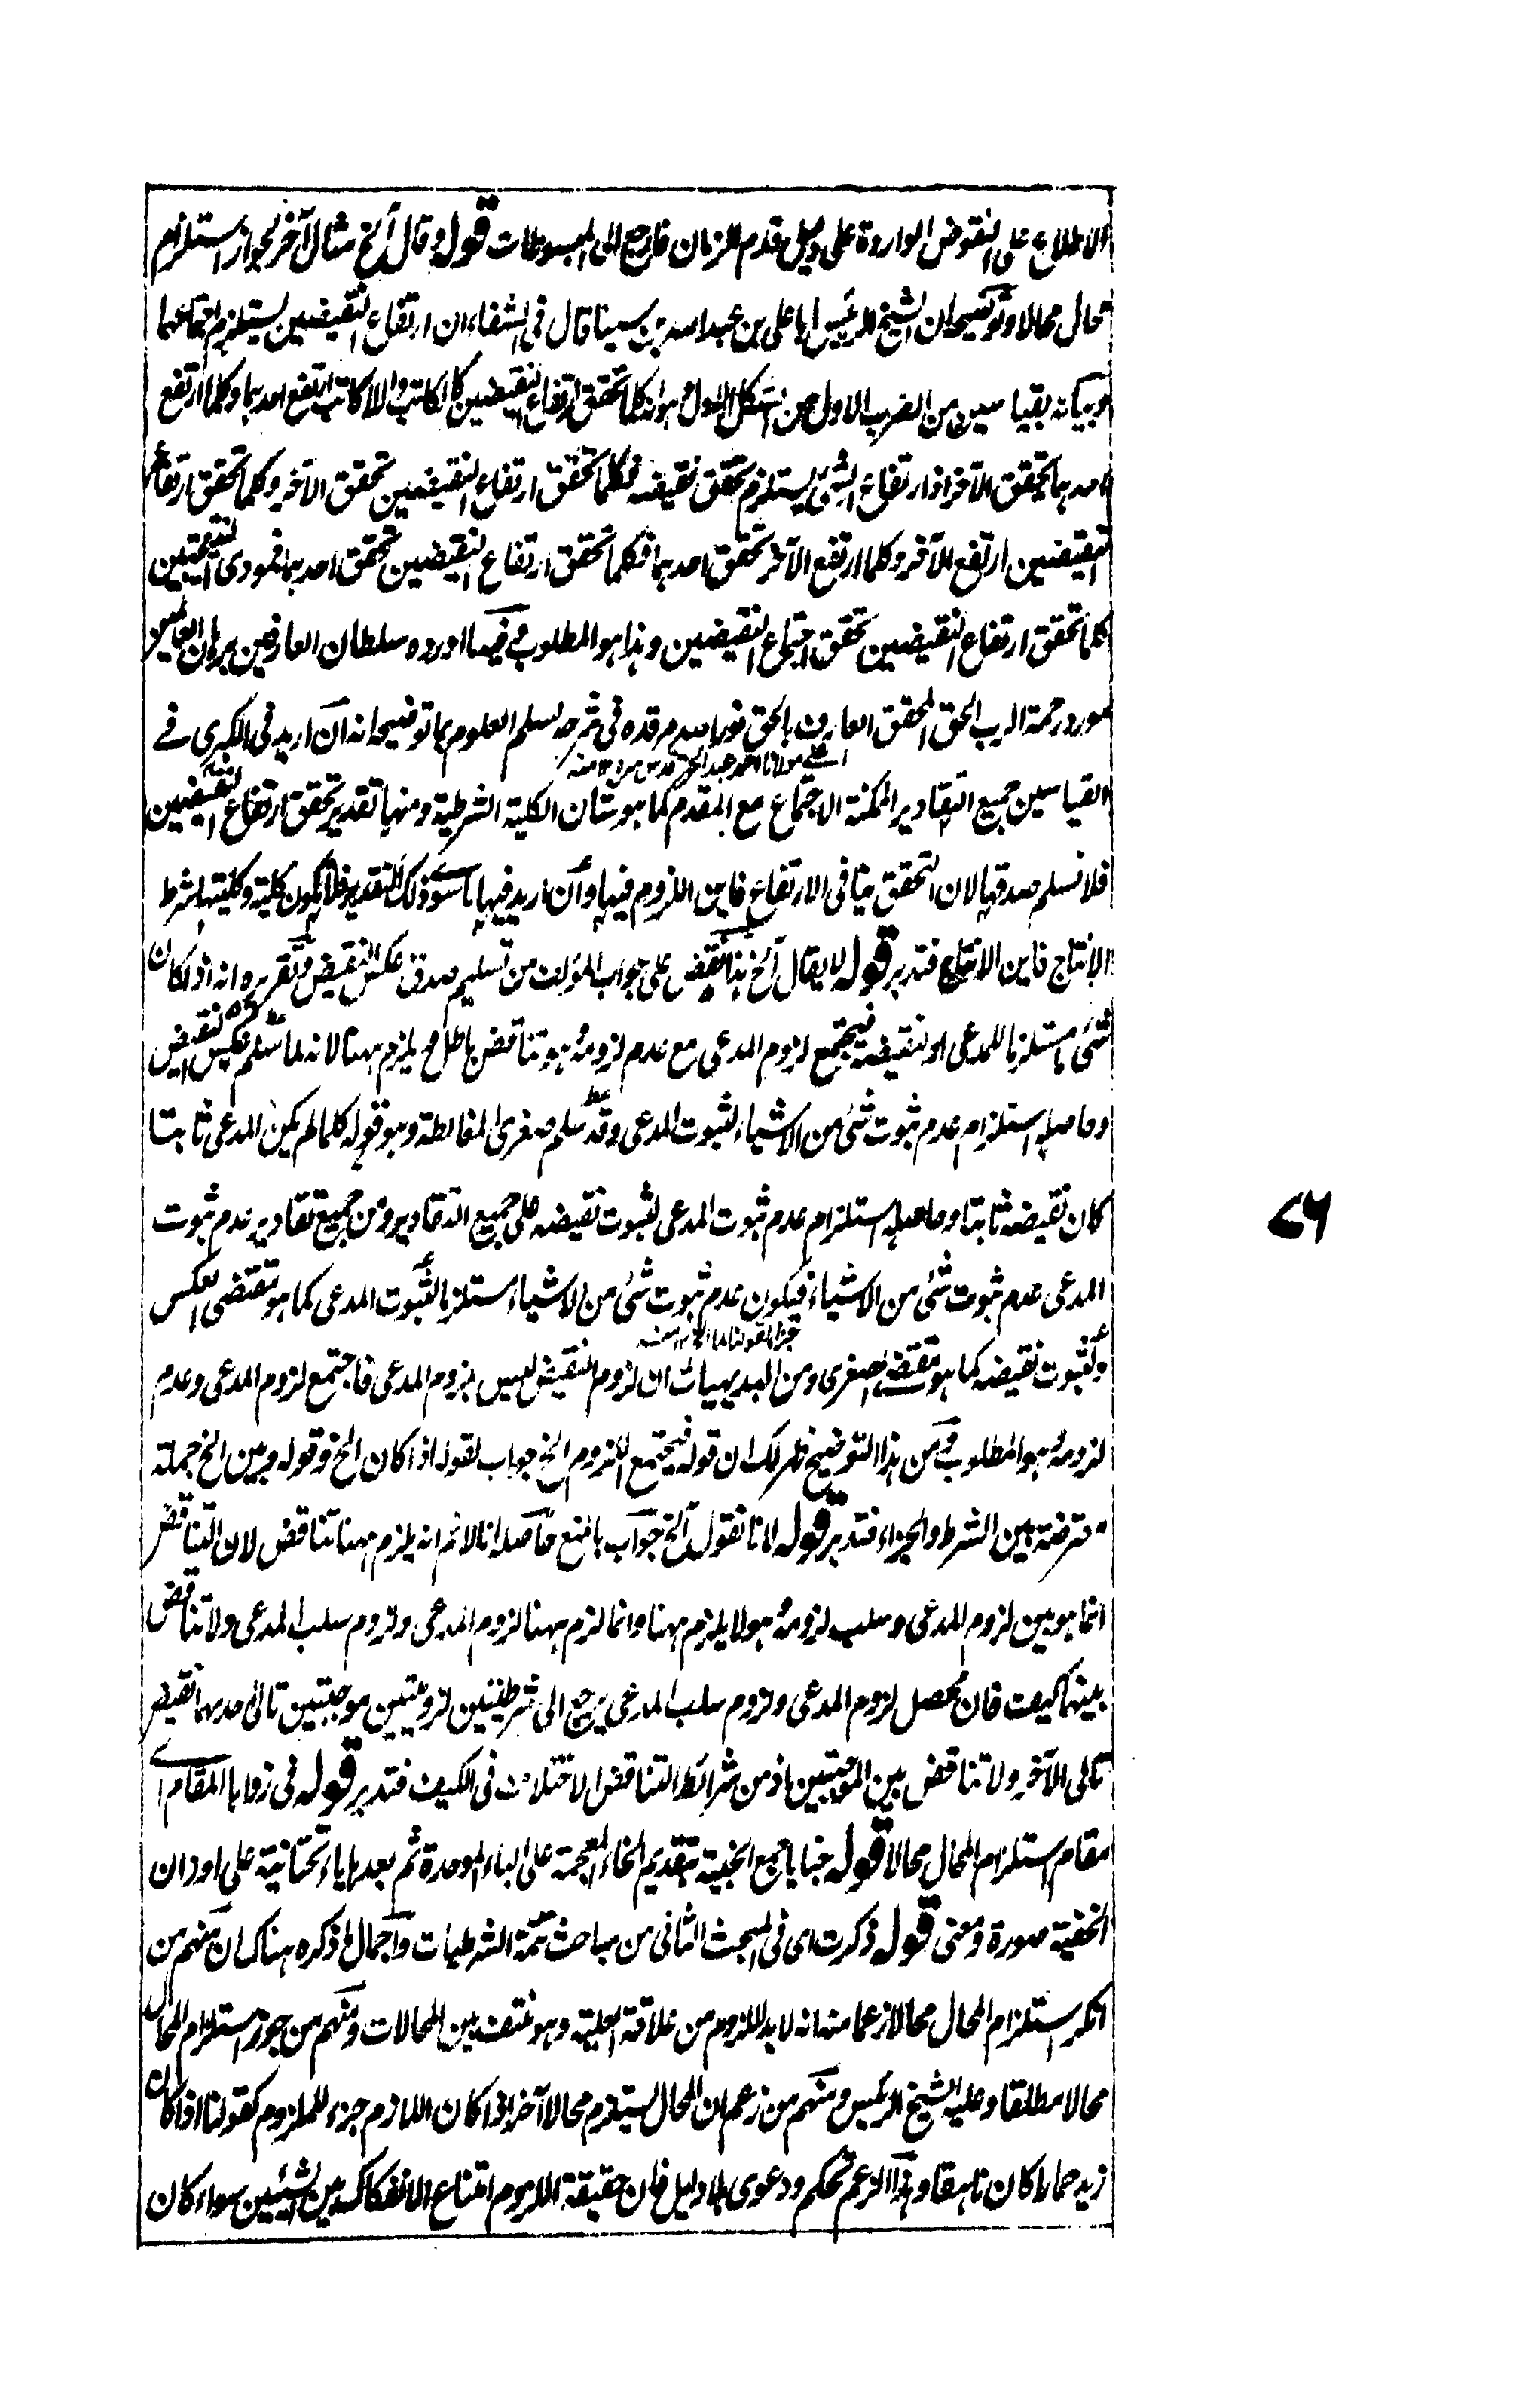 الاطلاع على النقوض الواردة على دليل قدم الزمان فارجع الى المبسوطات قوله وقال الخ مثال آخر لجواز استلزام
محال محالا وتوضيحه ان الشيخ الرئيس ابا على بن عبد الله بن سينا قال فى الشفاء ان ارتفاع النقيضين يستلزم اجتماعهما
وبيانه بقياسين من الضرب الاول من الشكل الاول وهو انه كلما تحقق ارتفاع النقيضين كالكاتب واللاكاتب ارتفع احدهما وكلما ارتفع
احدهما تحقق الآخر اذ ارتفاع الشئ يستلزم تحقق نقيضه فكلما تحقق ارتفاع النقيضين تحقق الآخر وكلما تحقق ارتفاع
النقيضين ارتفع الآخر وكلما ارتفع الآخر تحقق احدهما فكلما تحقق ارتفاع النقيضين تحقق احدهما فمودى النتيجتين
كلما تحقق ارتفاع النقيضين تحقق اجتماع النقيضين وهذا هو المطلوب وفيه ما اورده سلطان العارفين برهان العالمين
مورد رحمة الرب الحق المحقق العارف بالحق نور الله مرقده فى شرحه لسلم العلوم بما توضيحه انه ان اريد فى الكبرى فے
اعنے مولانا احمد عبد الحق قدس سره ١٢ منه
القياسين جميع التقادير الممكنة الاجتماع مع المقدم كما هو شان الكلية الشرطية ومنها تقدير تحقق ارتفاع النقيضين
فلا نسلم صدقها لان التحقق ينافى الارتفاع فاين اللزوم فيها وان اريد فيها ما سوے ذلك التقدير فلا يكون كلية وكليتها شرط
الانتاج فاين الانتاج فتدبر قوله لا يقال الخ هذا نقض على جواب المؤلف من تسليم صدق عكس النقيض وتقريره انه اذا كان
شئ مستلزما للمدعى او نقيضه فيجتمع لزوم المدعى مع عدم لزومه وهو تناقض باطل ويلزم ههنا لانه لما سلم عكس النقيض
وحاصله استلزام عدم ثبوت شئ من الاشياء لثبوت المدعى وقد سلم صغرى المغالطة وهو قوله كلما لم يكن المدعى ثابتا
كان نقيضه ثابتا وحاصله استلزام عدم ثبوت المدعى لثبوت نقيضه على جميع التقادير ومن جميع تقادير عدم ثبوت
المدعى عدم ثبوت شئ من الاشياء فيكون عدم ثبوت شئ من الاشياء مستلزما لثبوت المدعى كما هو مقتضى العكس
جزاء لقولنا لما الخ ١٢ منه
ولثبوت نقيضه كما هو مقتضے الصغرى ومن البديهيات ان لزوم النقيض ليس لزوم المدعى فاجتمع لزوم المدعى وعدم
لزومه وهو المطلوب ومن هذا التوضيح ظهر لك ان قوله فيجتمع اللزوم الخ جواب لقوله اذا كان الخ وقوله وبين الخ جملة
معترضة بين الشرط والجزاء فتدبر قوله لانا نقول الخ جواب بالمنع حاصله انا لا نم انه يلزم ههنا تناقض لان التناقض
انما هو بين لزوم المدعى وسلب لزومه وهو لا يلزم ههنا وانما لزم ههنا لزوم المدعى ولزوم سلب المدعى ولا تناقض
بينهما كيف فان محصل لزوم المدعى ولزوم سلب المدعى يرجع الى شرطيتين لزوميتين موجبتين تالى احدهما نقيض
تالى الآخر ولا تناقض بين الموجبتين اذ من شرائط التناقض الاختلاف فى الكيف فتدبر قوله فى زوايا المقام اے
مقام استلزام المحال محالا قوله خبايا جمع الخبية بتقديم الخاء المعجمة على الباء الموحدة ثم بعدها ياء تحتانية على اوزان
الخفية صورة ومعنى قوله ذكرت اى فى المبحث الثانى من مباحث تتمة الشرطيات واجمال ما ذكره هناك ان منهم من
انكر استلزام المحال محالا زعما منه انه لا بد للزوم من علاقة العلية وهو منتف بين المحالات ومنهم من جوز استلزام المحال
محالا مطلقا وعليه الشيخ الرئيس ومنهم من زعم ان المحال يستلزم محالا آخر اذا كان اللازم جزء للملزوم كقولنا اذا كان
زيد حمارا كان ناهقا وهذا الزعم تحكم ودعوى بلا دليل فان حقيقة اللزوم امتناع الانفكاك بين الشيئين سواء كان
٧٦